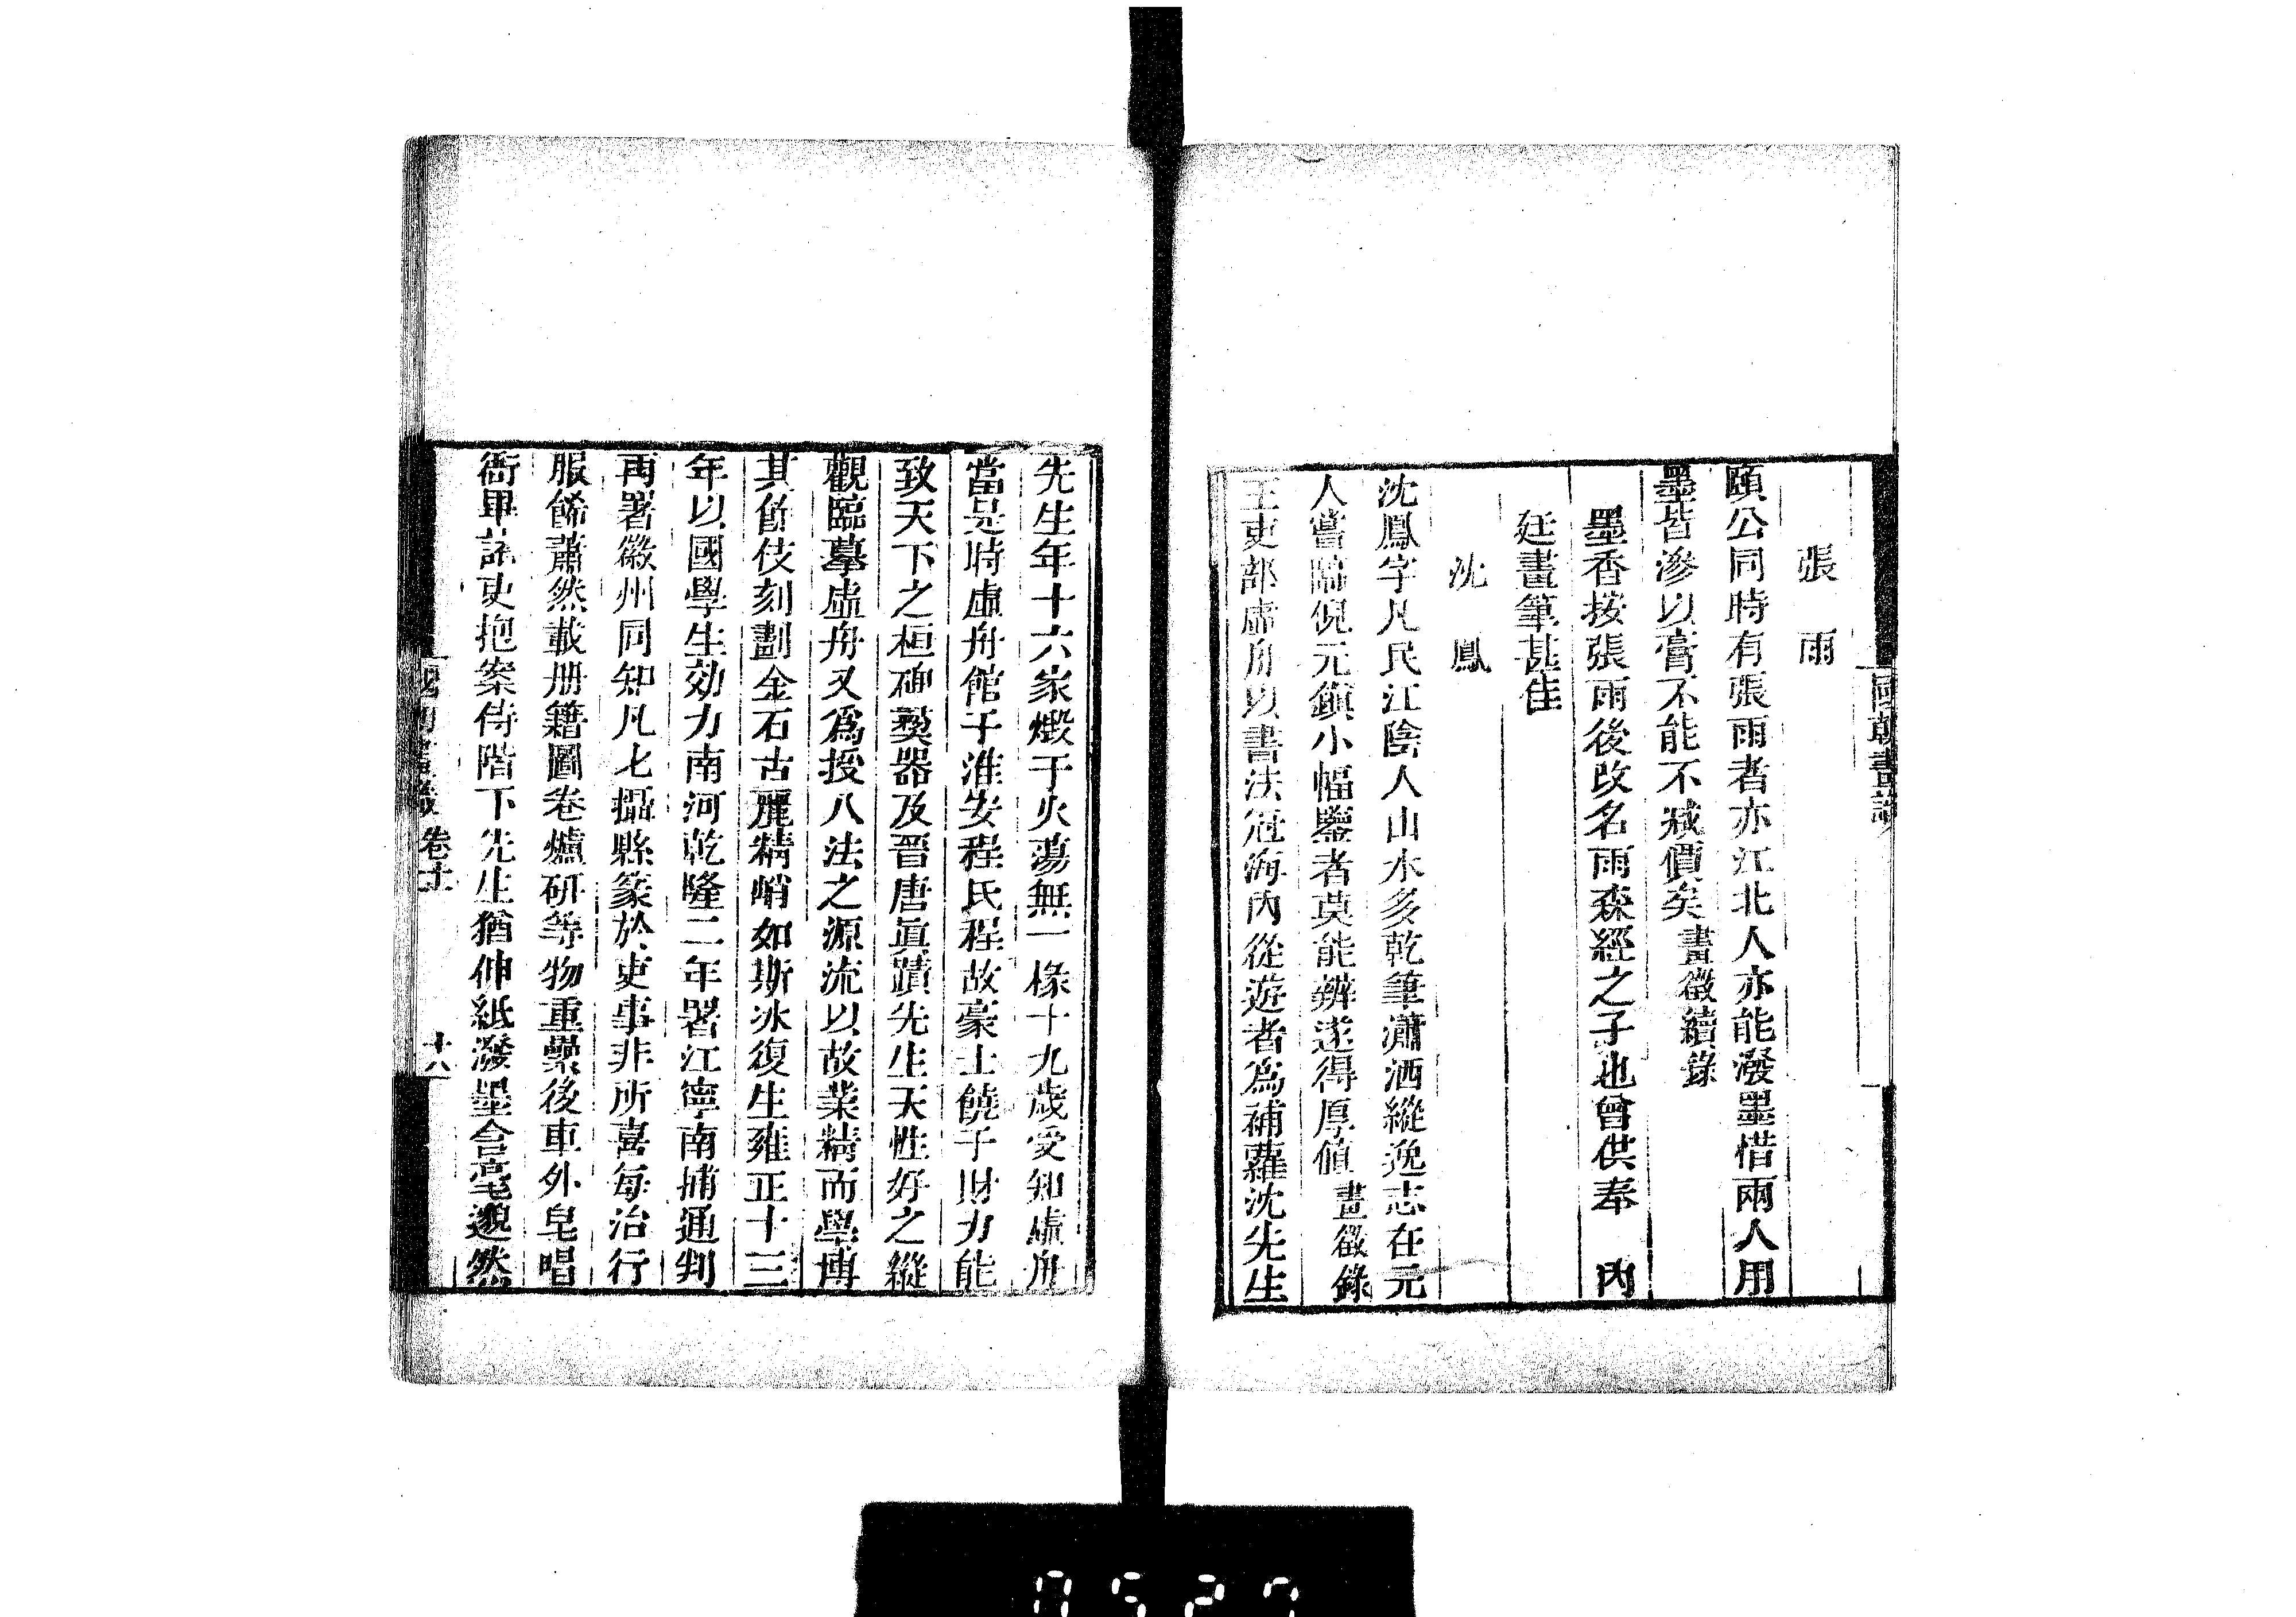 國朝畫識
張雨
頤公同時有張雨者亦江北人亦能潑墨惜兩人用
墨皆滲以膏不能不減價矣畫徵續錄
墨香按張雨後改名雨森經之子也曾供奉 內
廷畫筆甚佳
沈鳳
沈鳳字凡民江陰人山水多乾筆瀟洒縱逸志在元
人嘗臨倪元鎮小幅鑒者莫能辨遂得厚値畫徵錄
王吏部虛舟以書法冠海內從遊者爲補蘿沈先生
先生年十六家燬于火蕩無一椽十九歲受知虛舟
當是時虛舟館于淮安程氏程故豪士饒于財力能
致天下之桓碑彝器及晉唐眞蹟先生天性好之縱
觀臨摹虛舟又爲授八法之源流以故業精而學博
其餘伎刻劃金石古麗精峭如斯冰復生雍正十三
年以國學生効力南河乾隆二年署江寧南捕通判
再署徽州同知凡七攝縣篆於吏事非所喜每治行
服飾蕭然載册籍圖卷爐研等物重纍後車外皂唱
衙畢訴吏抱案侍階下先生猶伸紙潑墨含毫邈然
卷十
十八